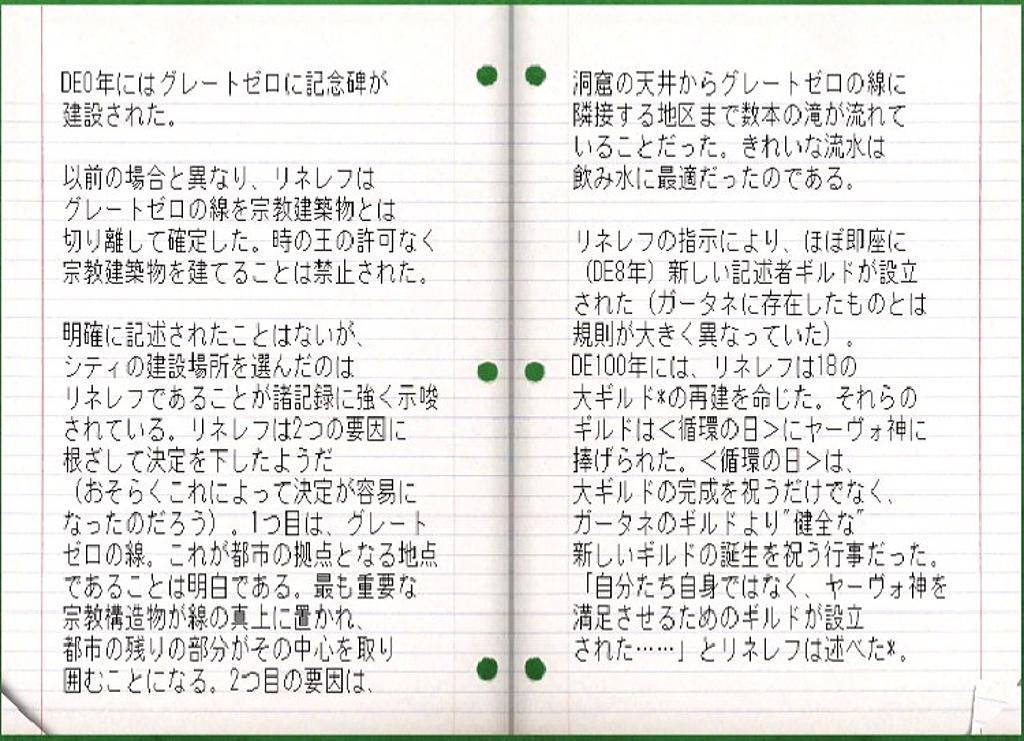 DE0年にはグレートゼロに記念碑が
建設された。
以前の場合と異なり、リネレフは
グレートゼロの線を宗教建築物とは
切り離して確定した。時の王の許可なく
宗教建築物を建てることは禁止された。
明確に記述されたことはないが、
シティの建設場所を選んだのは
リネレフであることが諸記録に強く示唆
されている。リネレフは2つの要因に
根ざして決定を下したようだ
（おそらくこれによって決定が容易に
なったのだろう）。1つ目は、グレート
ゼロの線。これが都市の拠点となる地点
であることは明白である。最も重要な
宗教構造物が線の真上に置かれ、
都市の残りの部分がその中心を取り
囲むことになる。2つ目の要因は、
洞窟の天井からグレートゼロの線に
隣接する地区まで数本の滝が流れて
いることだった。きれいな流水は
飲み水に最適だったのである。
リネレフの指示により、ほぼ即座に
（DE8年）新しい記述者ギルドが設立
された（ガータネに存在したものとは
規則が大きく異なっていた）。
DE100年には、リネレフは18の
大ギルド*の再建を命じた。それらの
ギルドは＜循環の日＞にヤーヴォ神に
捧げられた。＜循環の日＞は、
大ギルドの完成を祝うだけでなく、
ガータネのギルドより"健全な"
新しいギルドの誕生を祝う行事だった。
「自分たち自身ではなく、ヤーヴォ神を
満足させるためのギルドが設立
された……」とリネレフは述べた*。